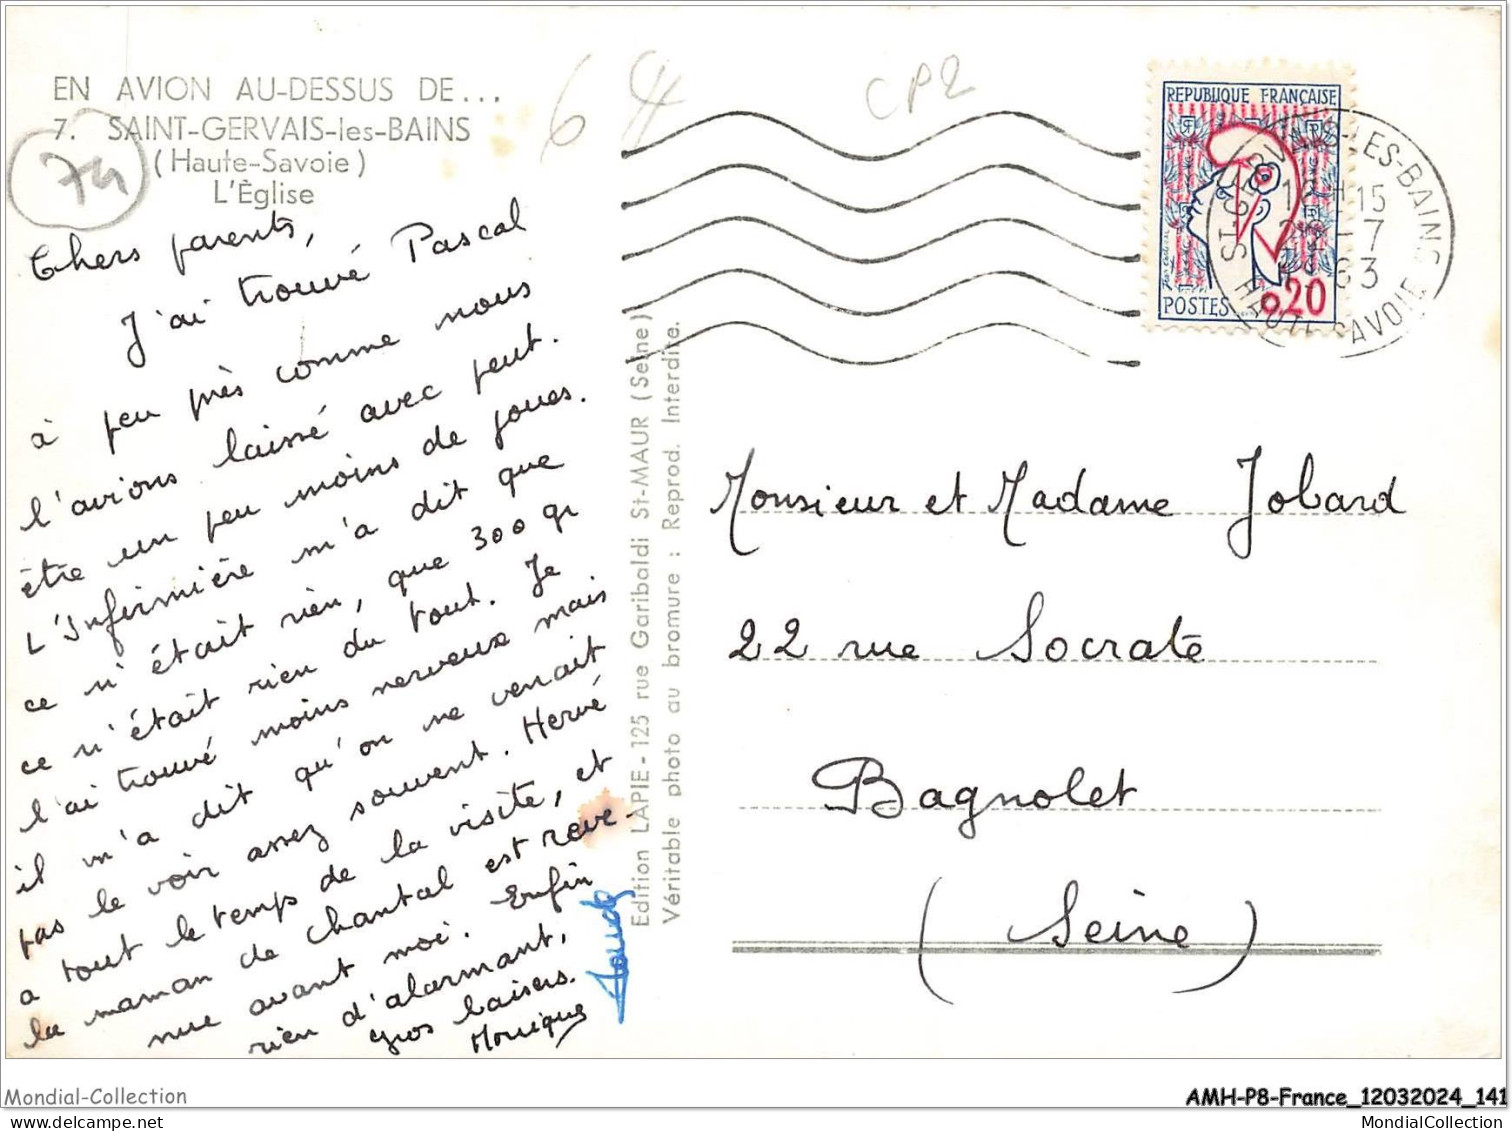 EN AVION AU-DESSUS DE...
7. SAINT-GERVAIS-les-BAINS
(Haute-Savoie)
L'Èglise
74
64
CP2
Chers parents,
J'ai trouvé Pascal
à peu près comme nous
l'avions laissé avec peut.
être un peu moins de joues.
L'Infirmière m'a dit que
ce n'était rien, que 300 gr
ce n'était rien du tout. Je
l'ai trouvé moins nerveux mais
il m'a dit qu'on ne venait
pas le voir assez souvent. Hervé
a tout le temps de la visite, et
la maman de Chantal est reve-
nue avant moi. Enfin
rien d'alarmant,
gros baisers.
Monique
Edition LAPIE - 125 rue Garibaldi St-MAUR (Seine)
Véritable photo au bromure : Reprod. Interdite.
REPUBLIQUE FRANÇAISE
RF
RF
POSTES
0,20
ST-GERVAIS-LES-BAINS
15
7
63
HAUTE SAVOIE
Monsieur et Madame Jobard
22 rue Socrate
Bagnolet
(Seine)
Mondial-Collection
AMH-P8-France_12032024_141
MondialCollection